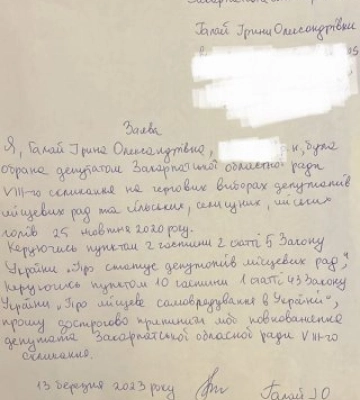 Галай Ірини Олександрівни
Заява
Я, Галай Ірина Олександрівна, н, була
обрана депутатом Закарпатської обласної ради
VIII-го скликання на чергових виборах депутатів
місцевих рад та сільських, селищних, міських
голів 25 жовтня 2020 року.
Керуючись пунктом 2 частини 2 статті 5 Закону
України „Про статус депутатів місцевих рад",
керуючись пунктом 10 частини 1 статті 43 Закону
України „Про місцеве самоврядування в Україні",
прошу достроково припинити мої повноваження
депутата Закарпатської обласної ради VIII-го
скликання.
13 березня 2023 року Галай І О